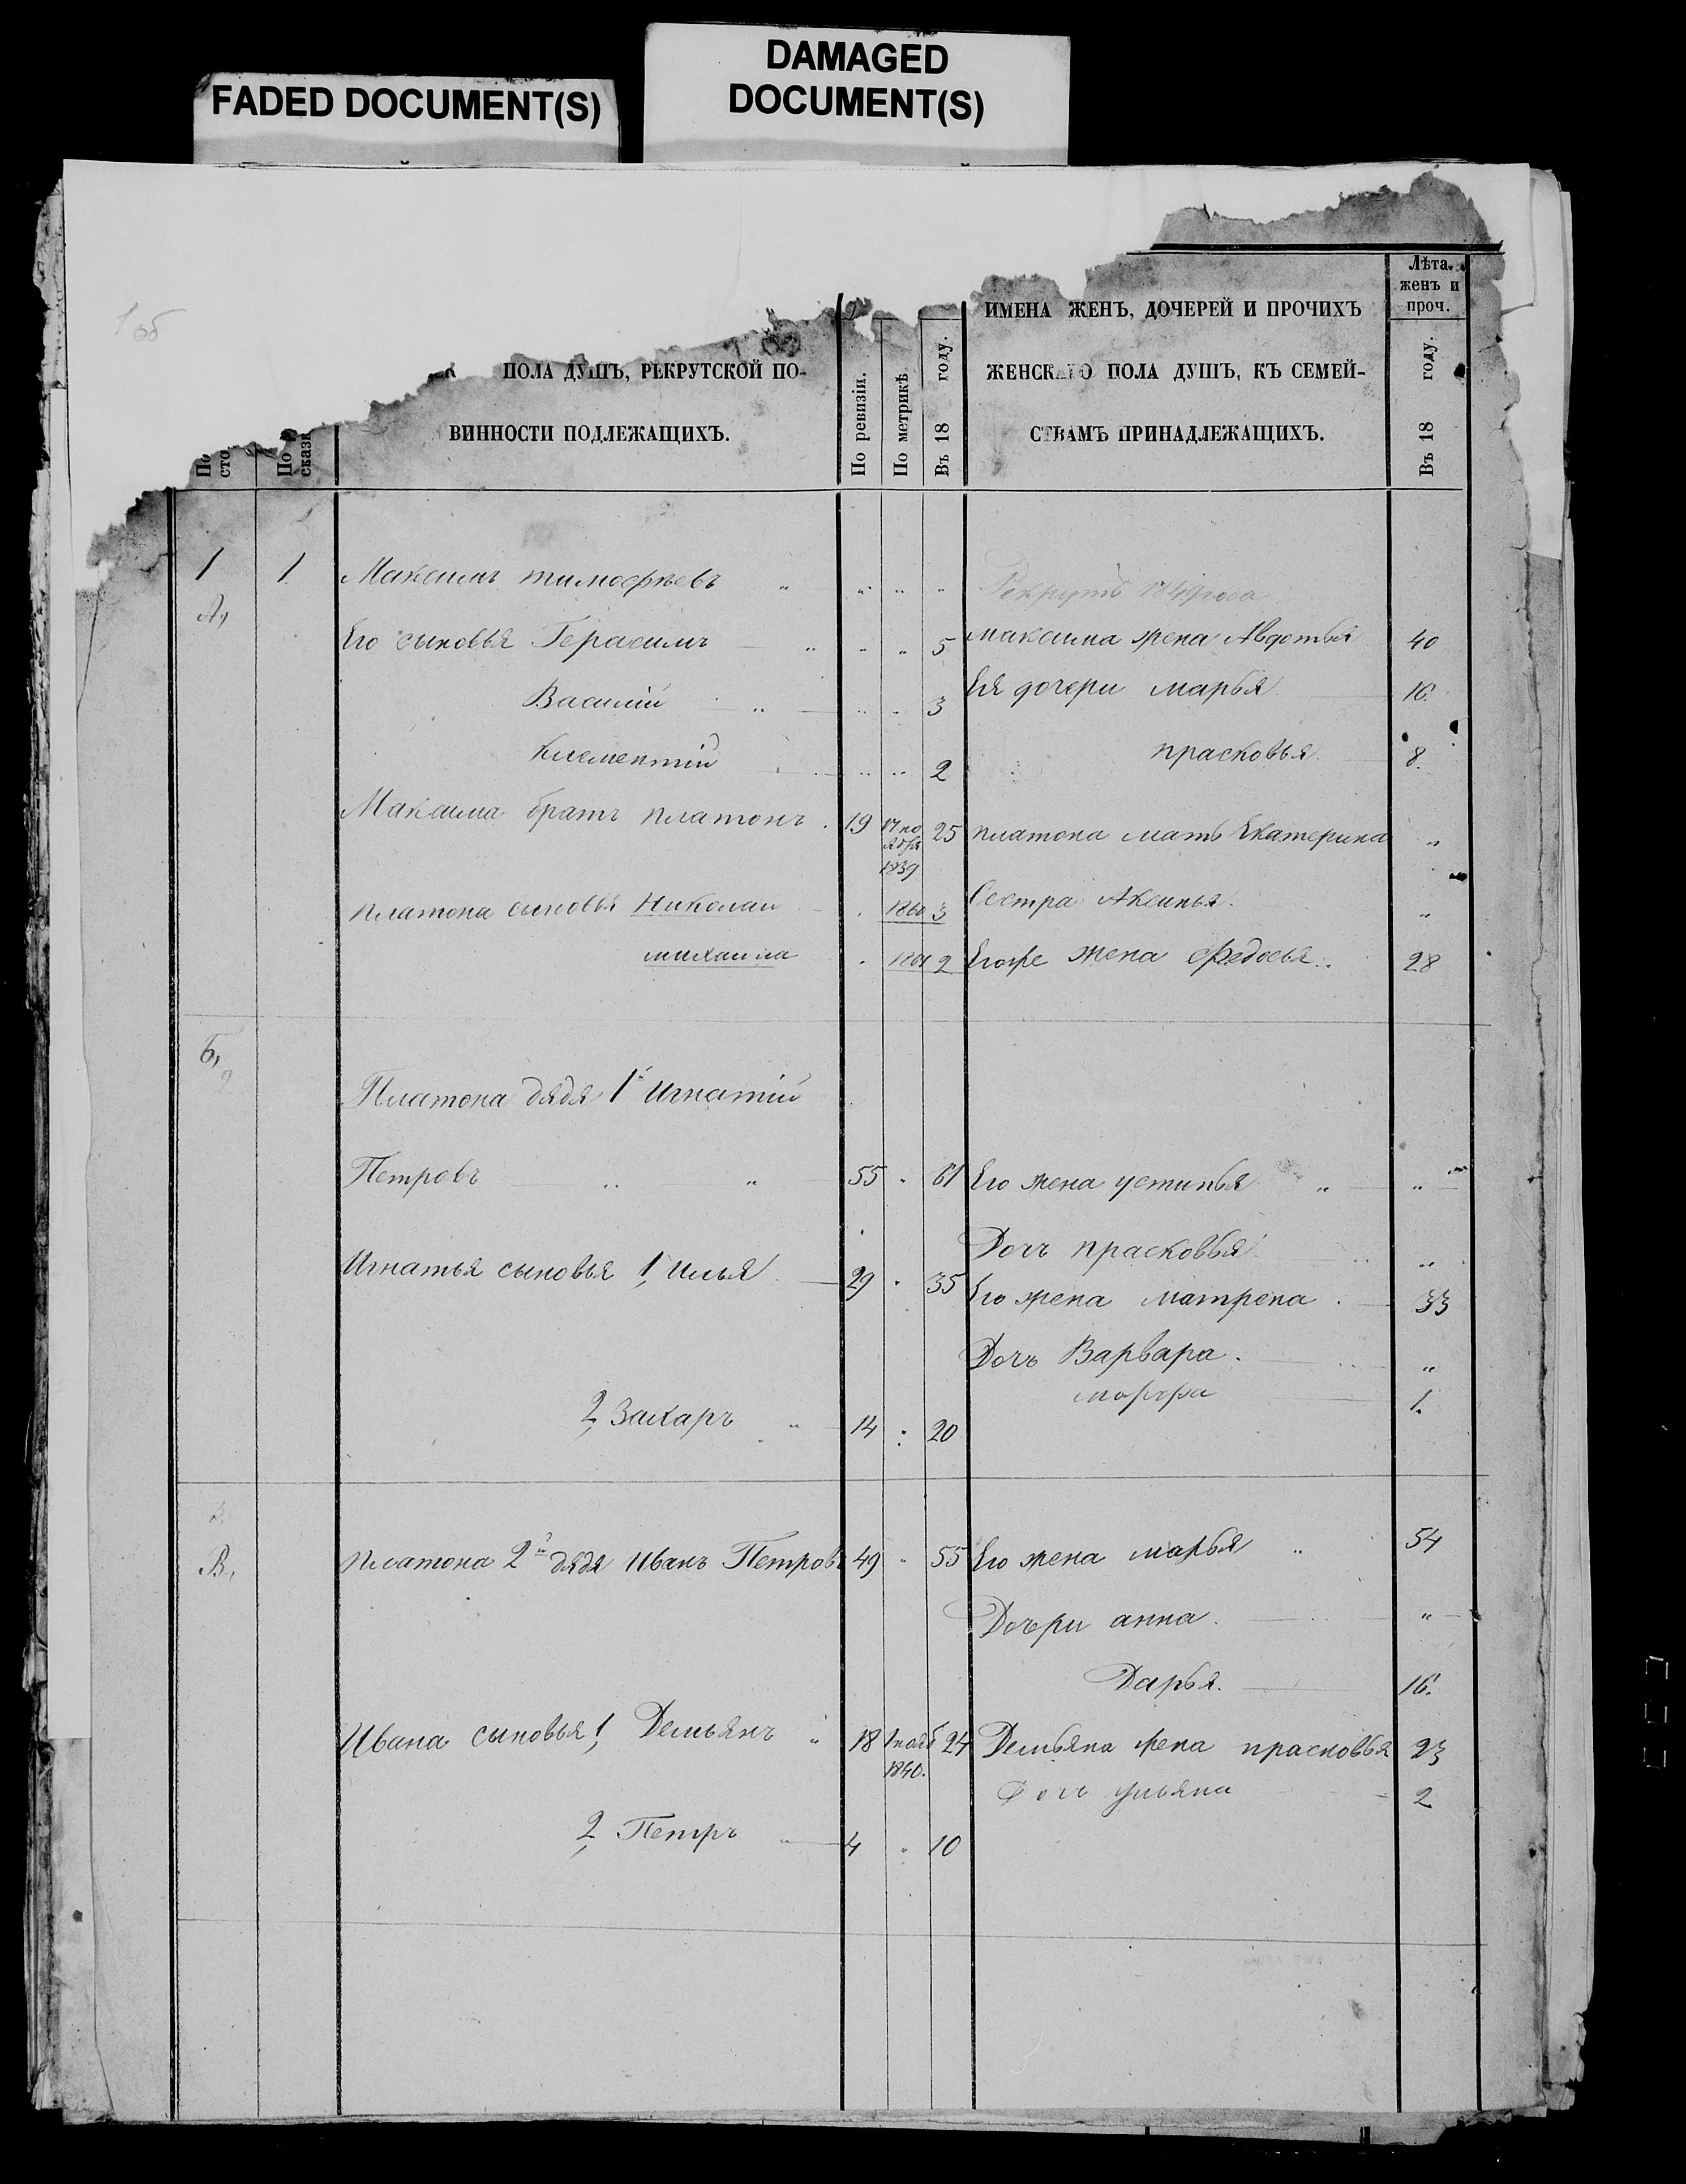 FADED DOCUMENT(S)
DAMAGED
DOCUMENT(S)
1об
ПОЛА ДУШЪ, РЕКРУТСКОЙ ПО-
ВИННОСТИ ПОДЛЕЖАЩИХЪ.
По ревизіи.
По метрикѣ
Въ 18 году.
ИМЕНА ЖЕНЪ, ДОЧЕРЕЙ И ПРОЧИХЪ
ЖЕНСКАГО ПОЛА ДУШЪ, КЪ СЕМЕЙ-
СТВАМЪ ПРИНАДЛЕЖАЩИХЪ.
Лѣта
женъ и
проч.
Въ 18 году.
По
сто
По
сказк
1 1. Максимъ тимофѣевъ " " " " Рекрутъ 1849 года
А,
Его сыновья Герасимъ " " " 5 максима жена Авдотья 40
Василій " " " 3 Ея дочери марья 16.
Климентій " " 2 прасковья 8.
Максима братъ платонъ. 19 ноября 1839 25 платона мать Екатерина "
платона сыновья Николай 1860 3 Сестра Аксинья. "
михаила 1861 2 Егоже жена Федосья 28
Б,
Платона дядя 1й Игнатій
Петровъ " " 55 " 61 Его жена устинья " "
Дочь прасковья "
Игнатья сыновья 1, илья 29 " 35 Его жена матрена 33
Дочь Варвара. "
марфа 1.
2, Захаръ " 14 : 20
В,
платона 2й дядя иванъ Петровъ 49 " 55 Его жена марья " 54
Дочери анна. "
Дарья. 16.
Ивана сыновья 1, Демьянъ " 18 1 нояб 1840. 24 Демьяна жена прасковья 23
Дочь ульяна 2
2, Петръ " 4 " 10